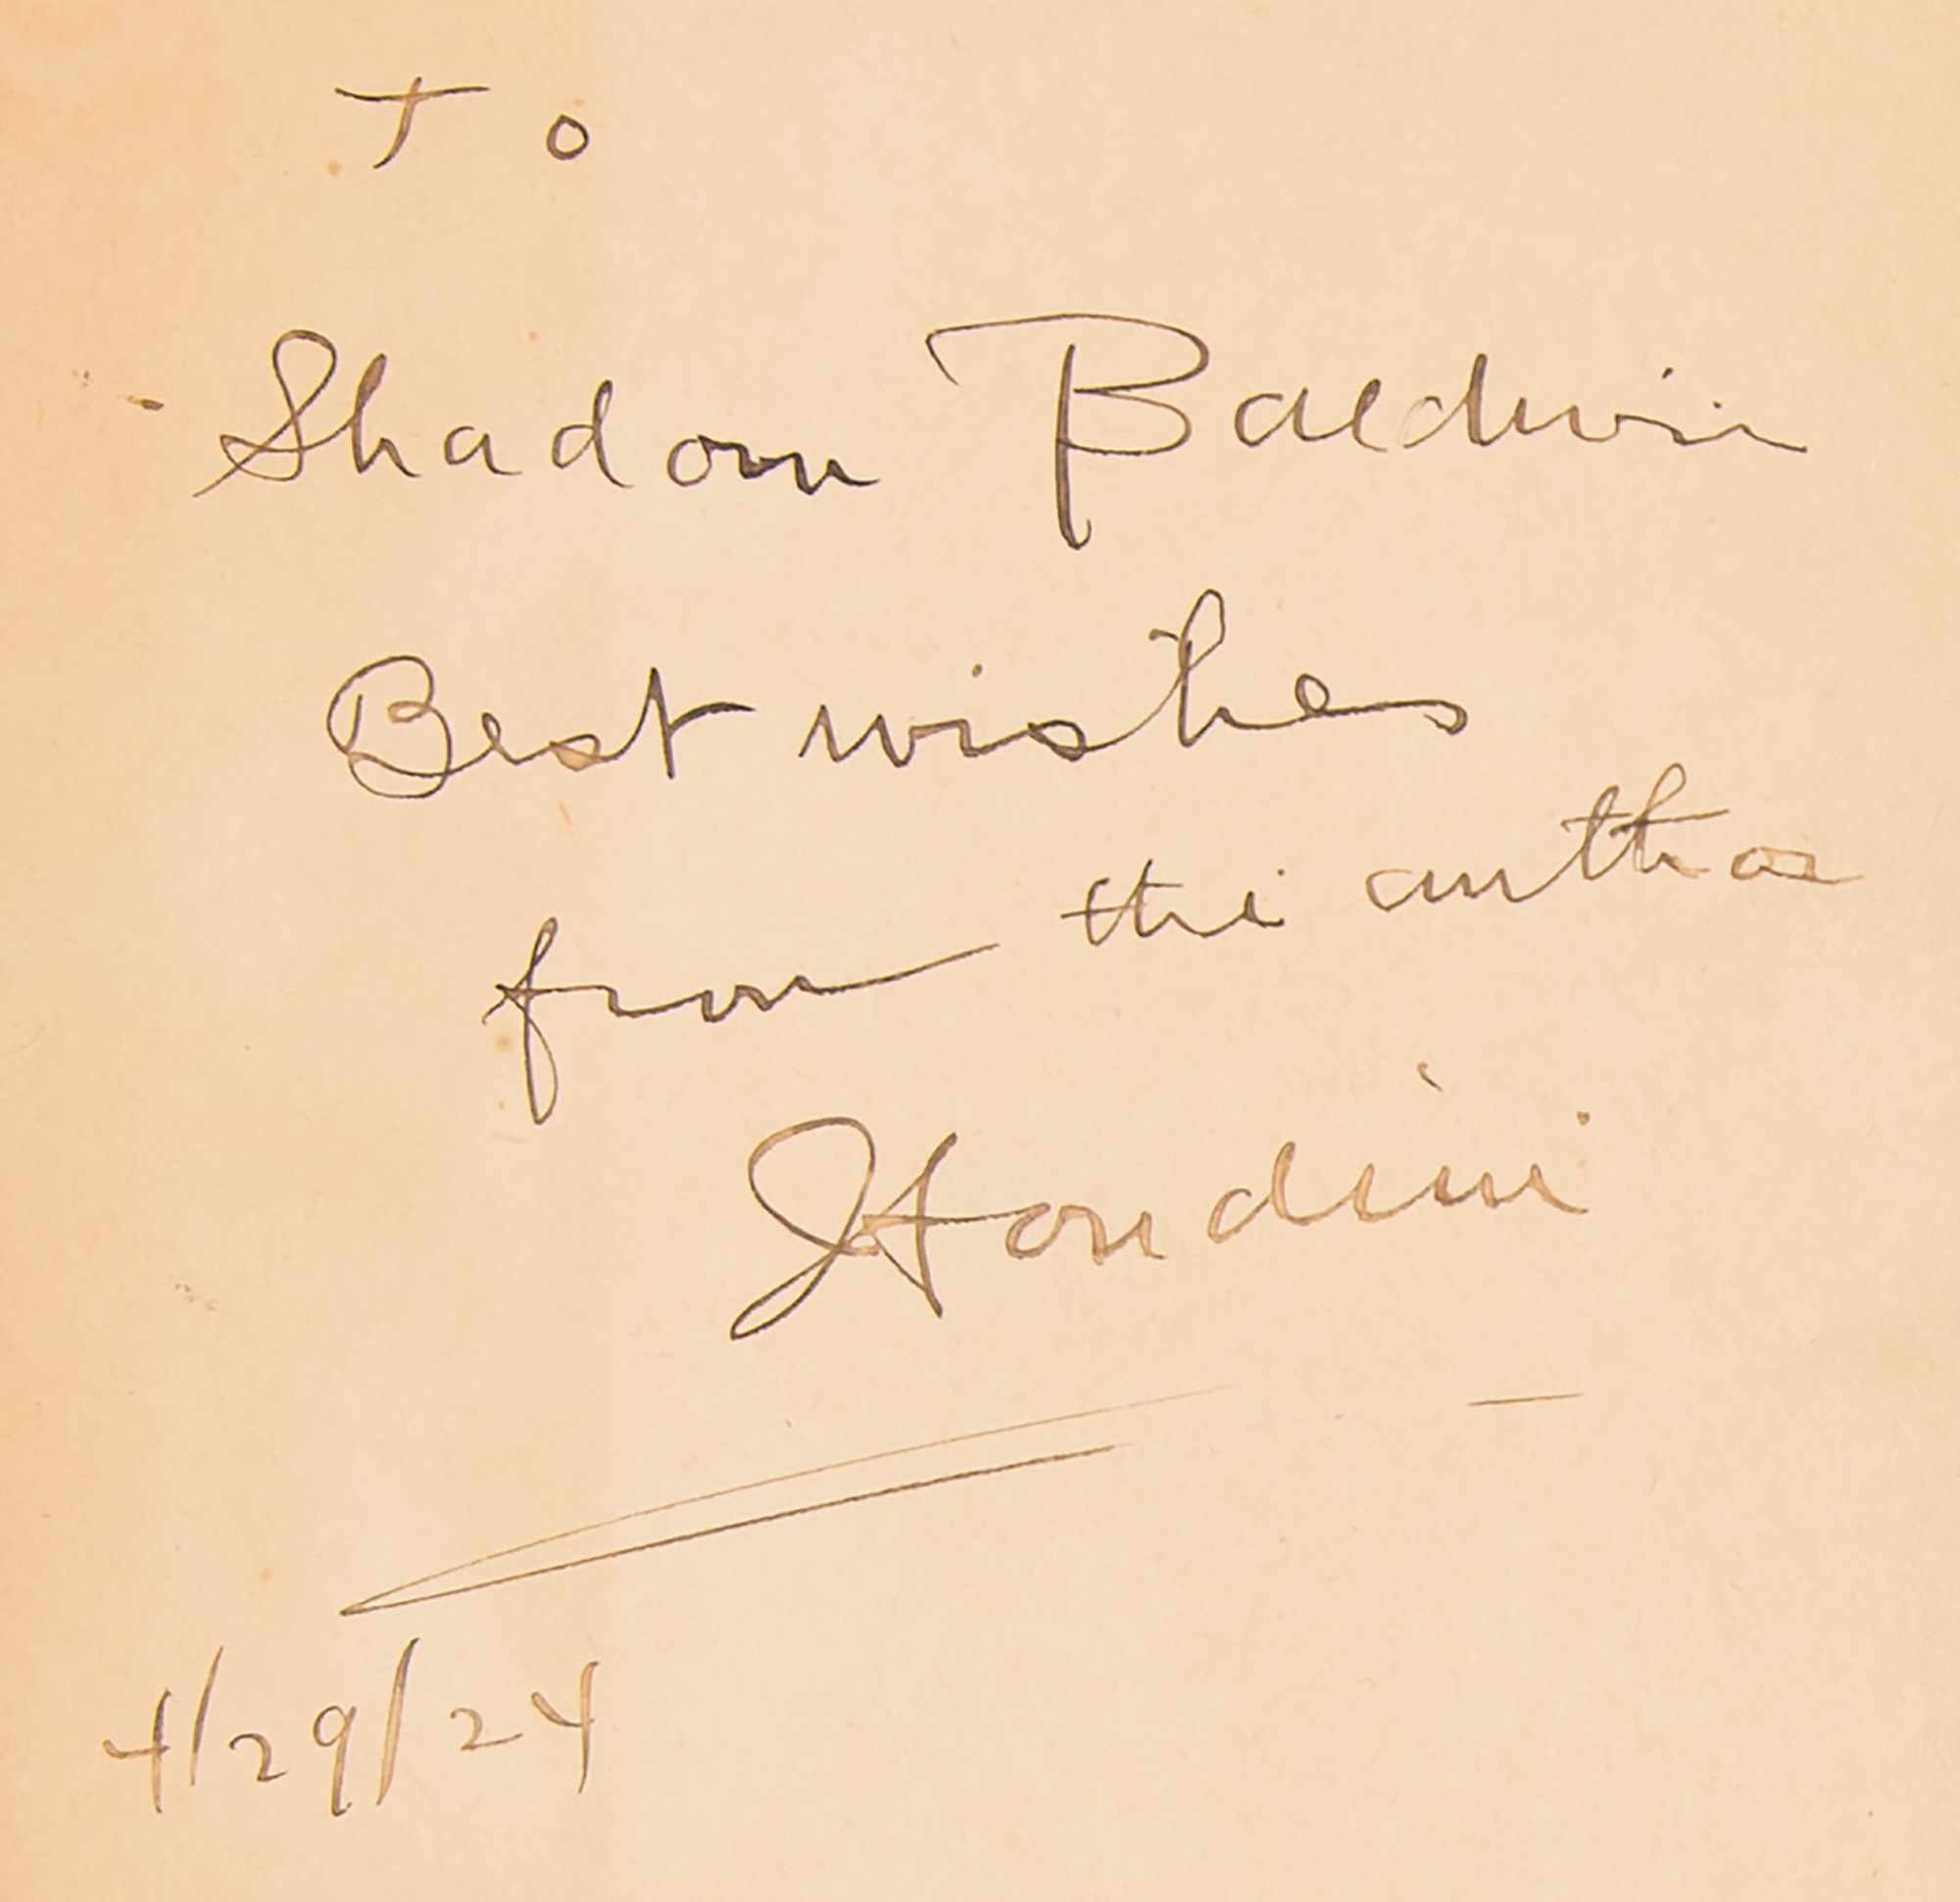 To
Shadow Baldwin
Best wishes
from the author
Houdini
4/29/24